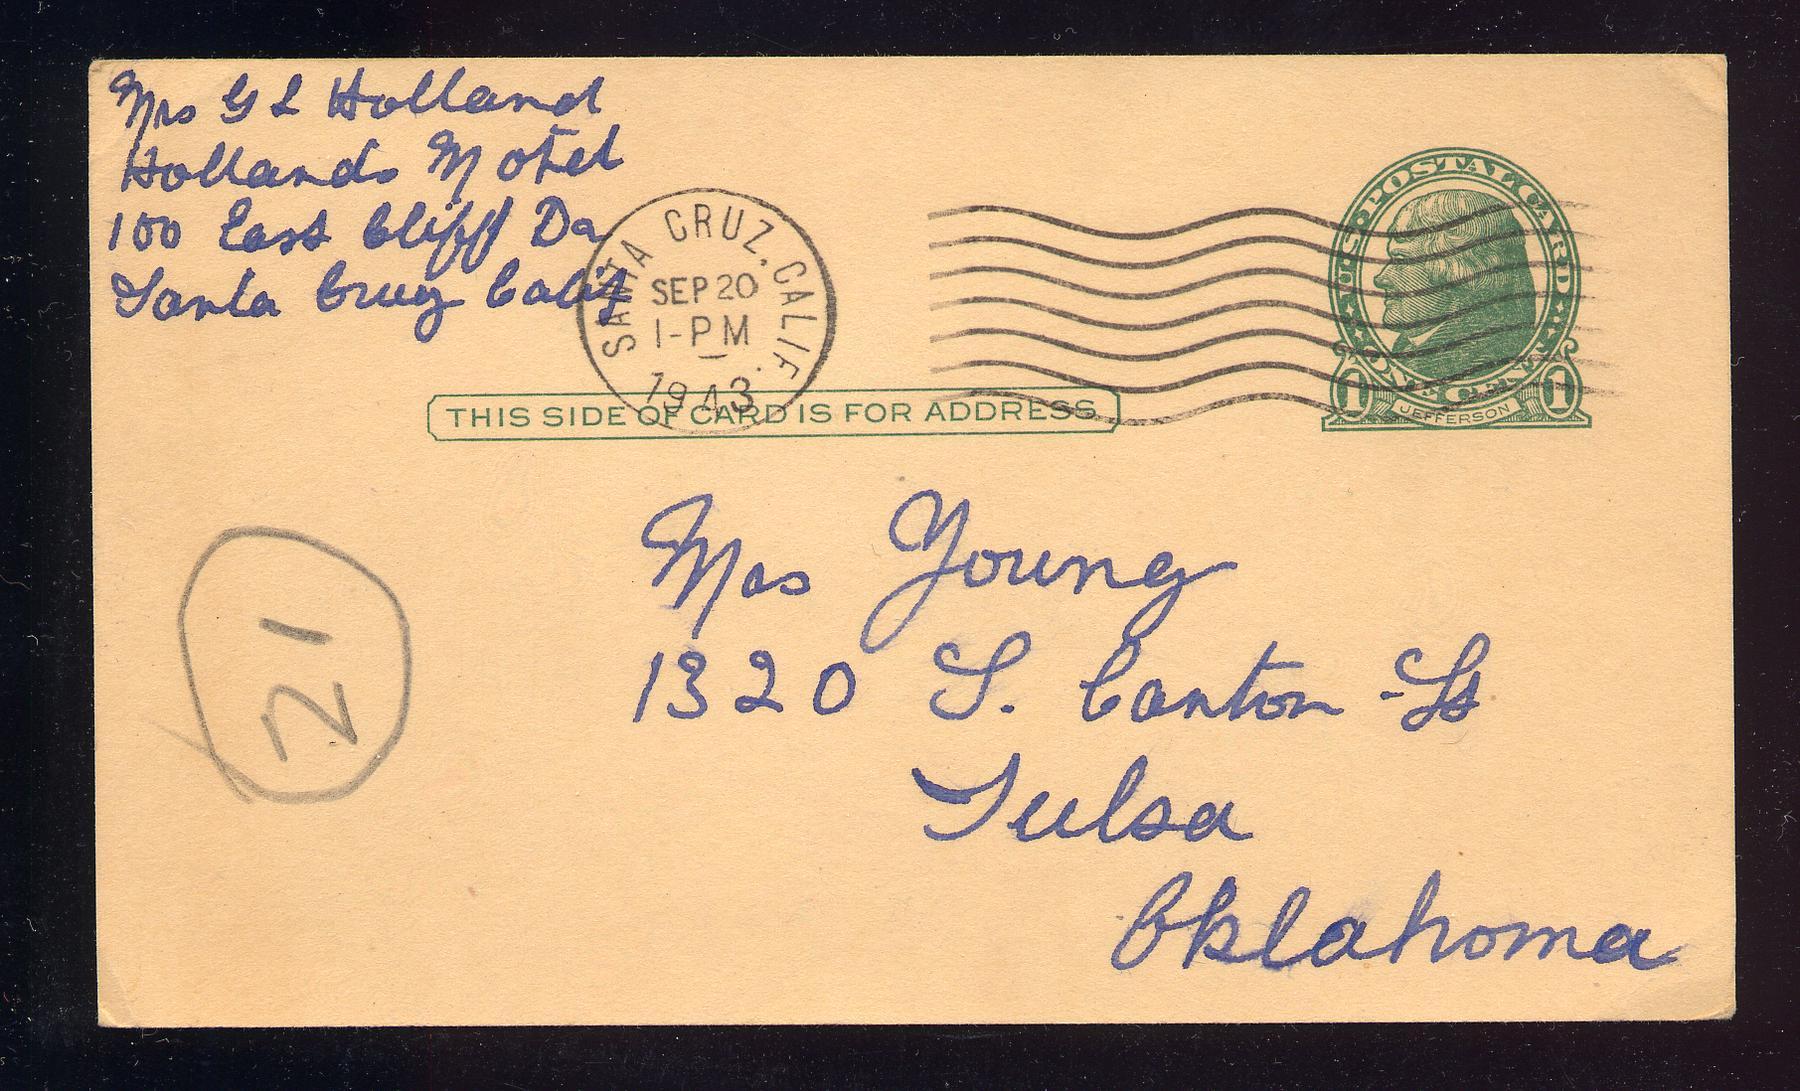 Mrs G L Holland
Hollands Motel
100 East Cliff Dr
Santa Cruz Calif
SANTA CRUZ, CALIF.
SEP 20
1-PM
1943
U.S. POSTAL CARD
ONE CENT
1 JEFFERSON 1
THIS SIDE OF CARD IS FOR ADDRESS
Mrs Young
1320 S. Canton St
Tulsa
Oklahoma
21